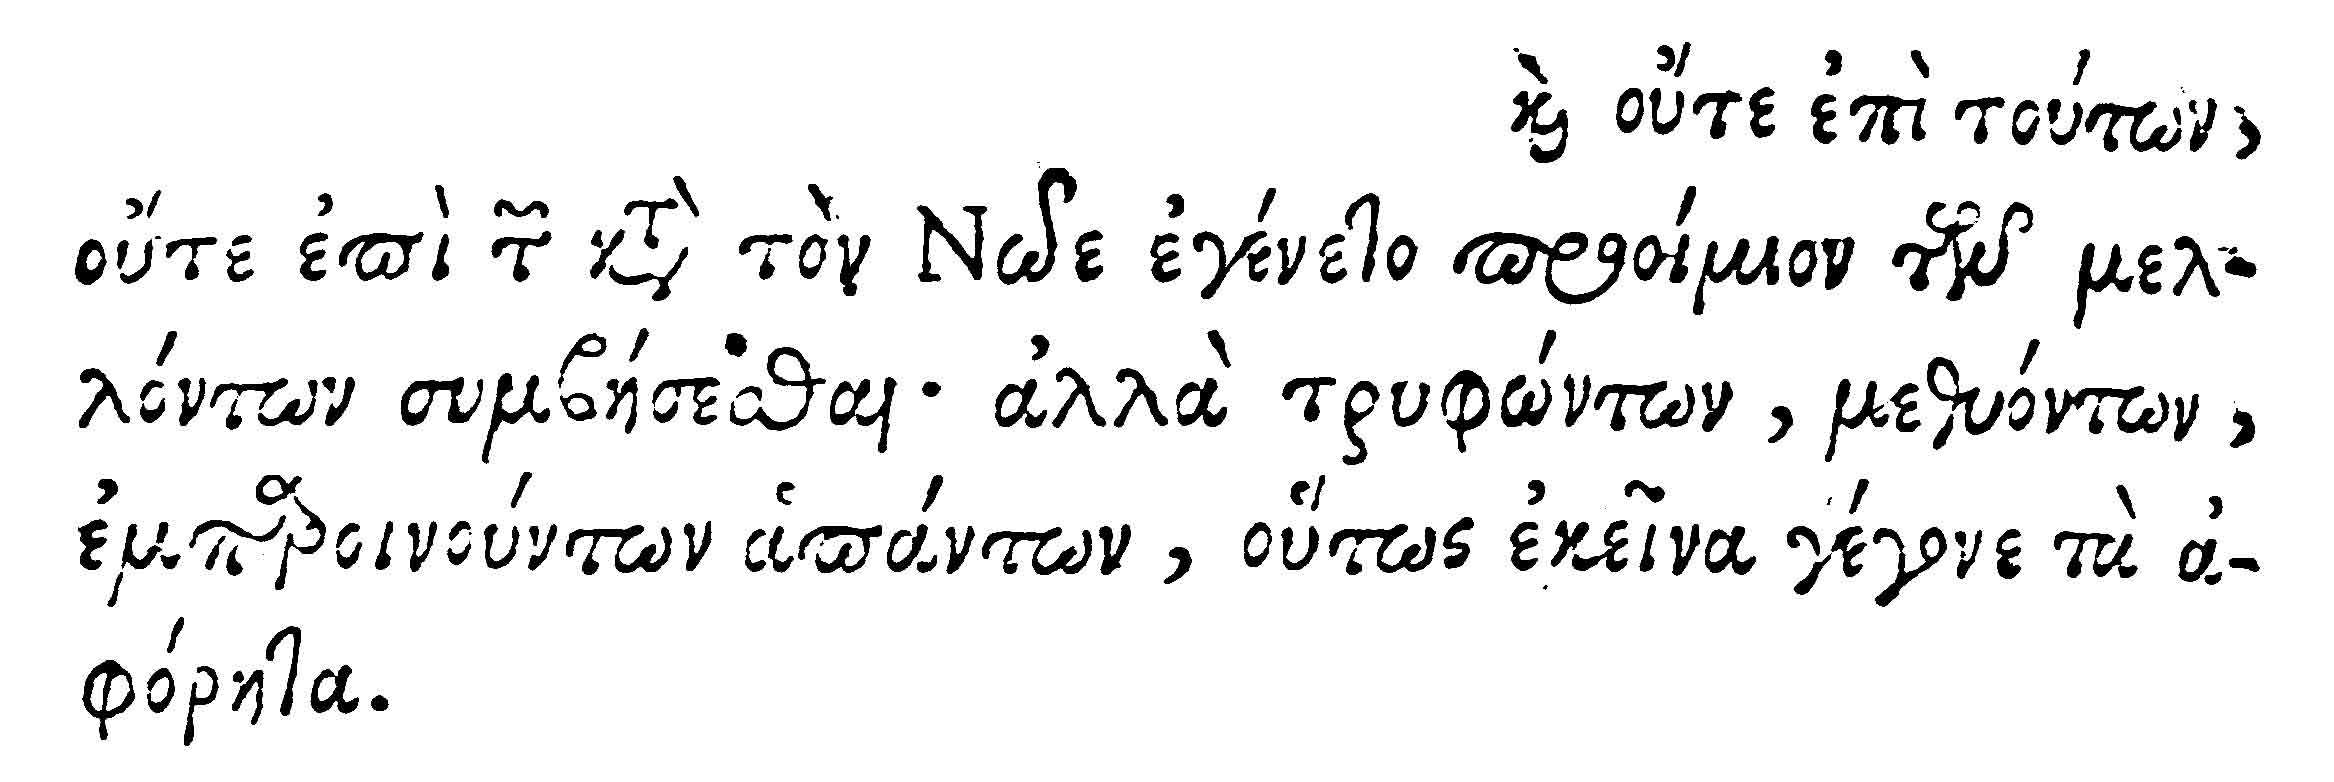 καὶ οὔτε ἐπὶ τούτων,
οὔτε ἐπὶ τῶν κατὰ τὸν Νῶε ἐγένετο προοίμιον τῶν μελ-
λόντων συμβήσεσθαι· ἀλλὰ τρυφώντων, μεθυόντων,
ἐμπαροινούντων ἁπάντων, οὕτως ἐκεῖνα γέγονε τὰ ἀ-
φόρητα.